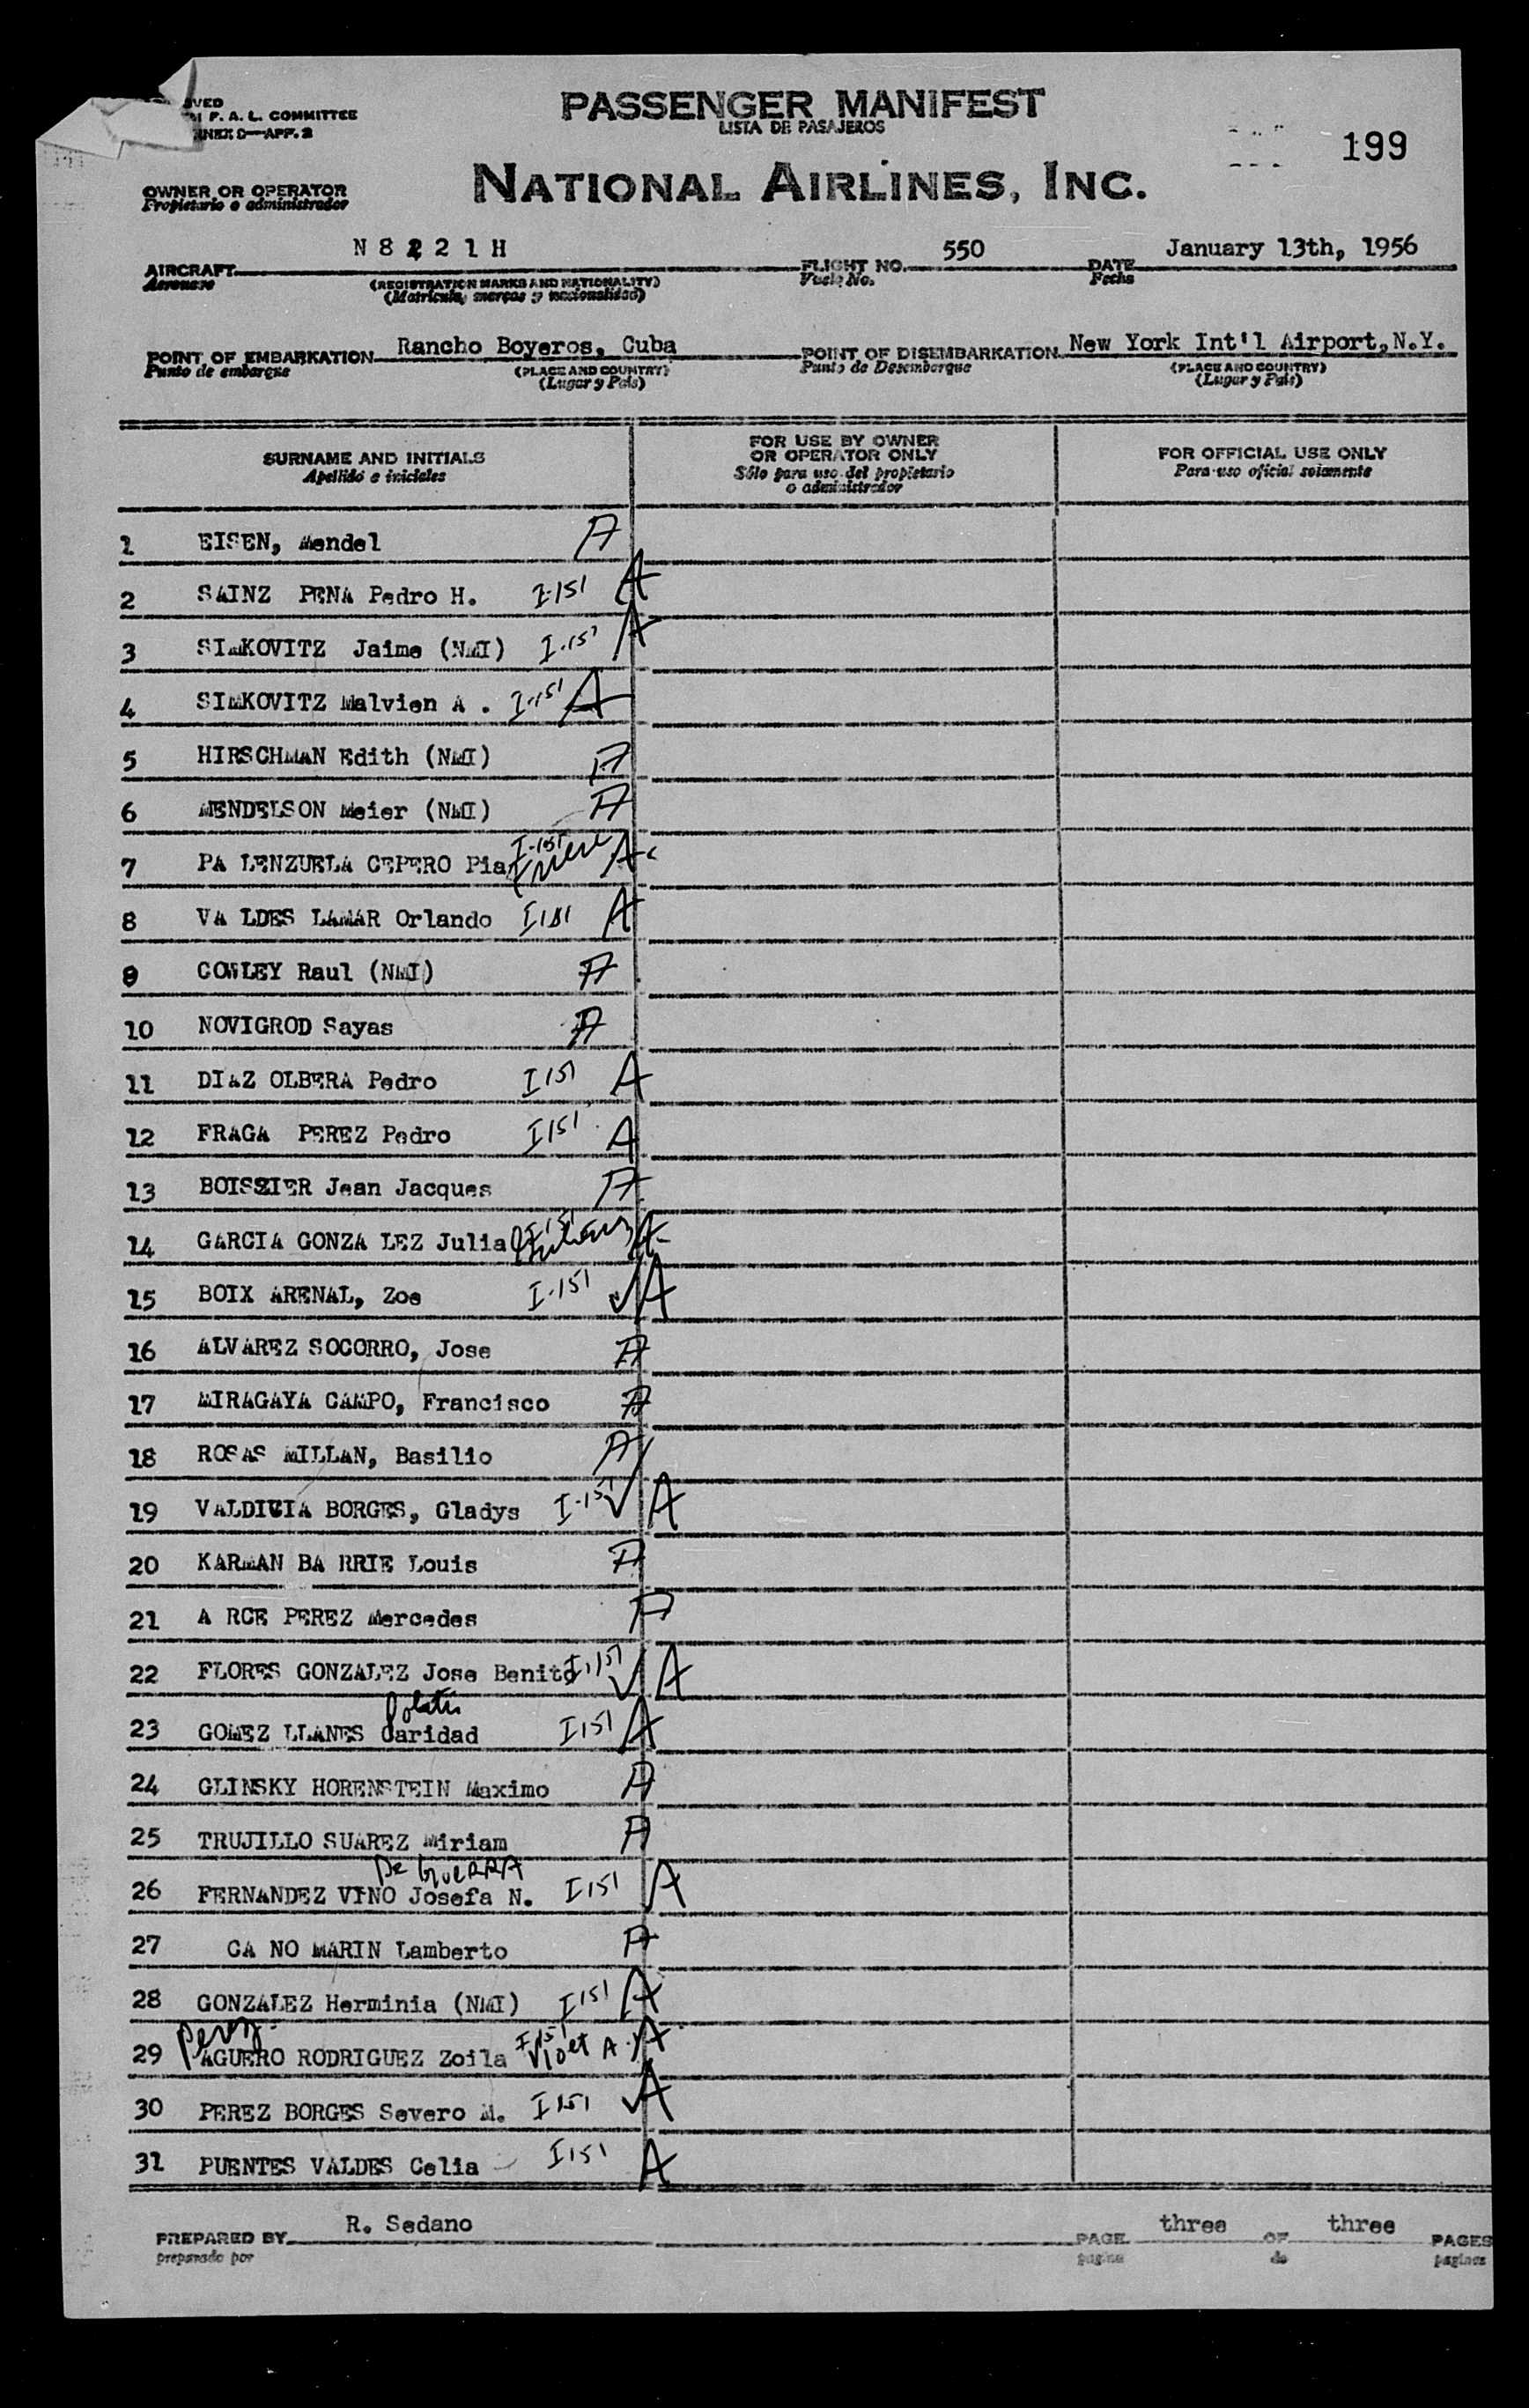 PASSENGER MANIFEST
LISTA DE PASAJEROS
F. A. L. COMMITTEE
APP. 2
199
OWNER OR OPERATOR
Propietario o administrador
NATIONAL AIRLINES, INC.
AIRCRAFT N 8 2 2 1 H FLIGHT NO. 550 DATE January 13th, 1956
Aeronave (REGISTRATION MARKS AND NATIONALITY) Vuelo No. Fecha
(Matricula, marcas y nacionalidad)
POINT OF EMBARKATION Rancho Boyeros, Cuba POINT OF DISEMBARKATION New York Int'l Airport, N.Y.
Punto de embarque (PLACE AND COUNTRY) Punto de Desembarque (PLACE AND COUNTRY)
(Lugar y Pais) (Lugar y Pais)
SURNAME AND INITIALS
Apellido e iniciales
FOR USE BY OWNER
OR OPERATOR ONLY
Sólo para uso del propietario
o administrador
FOR OFFICIAL USE ONLY
Para uso oficial solamente
1 EISEN, Mendel A
2 SAINZ PENA Pedro H. I-151 A
3 SIMKOVITZ Jaime (NMI) I-151 A
4 SIMKOVITZ Malvien A . I-151 A
5 HIRSCHMAN Edith (NMI) A
6 MENDELSON Meier (NMI) A
7 PA LENZUELA CEPERO Pia I-151 A
8 VA LDES LAMAR Orlando I151 A
9 COWLEY Raul (NMI) A
10 NOVIGROD Sayas A
11 DIAZ OLBERA Pedro I151 A
12 FRAGA PEREZ Pedro I151 A
13 BOISSIER Jean Jacques A
14 GARCIA GONZA LEZ Julia I-151 A
15 BOIX ARENAL, Zoe I-151 ✓ A
16 ALVAREZ SOCORRO, Jose A
17 MIRAGAYA CAMPO, Francisco A
18 ROSAS MILLAN, Basilio A
19 VALDIVIA BORGES, Gladys I-151 ✓ A
20 KARMAN BA RRIE Louis A
21 A RCE PEREZ Mercedes A
22 FLORES GONZALEZ Jose Benito I-151 ✓ A
23 GOMEZ LLANES Caridad I151 A
24 GLINSKY HORENSTEIN Maximo A
25 TRUJILLO SUAREZ Miriam A
De GUERRA
26 FERNANDEZ VINO Josefa N. I151 A
27 CA NO MARIN Lamberto A
28 GONZALEZ Herminia (NMI) I151 A
Perez
29 AGUERO RODRIGUEZ Zoila I-151 Violet A. A
30 PEREZ BORGES Severo M. I151 ✓ A
31 PUENTES VALDES Celia I151 A
PREPARED BY R. Sedano PAGE three OF three PAGES
preparado por pagina de paginas